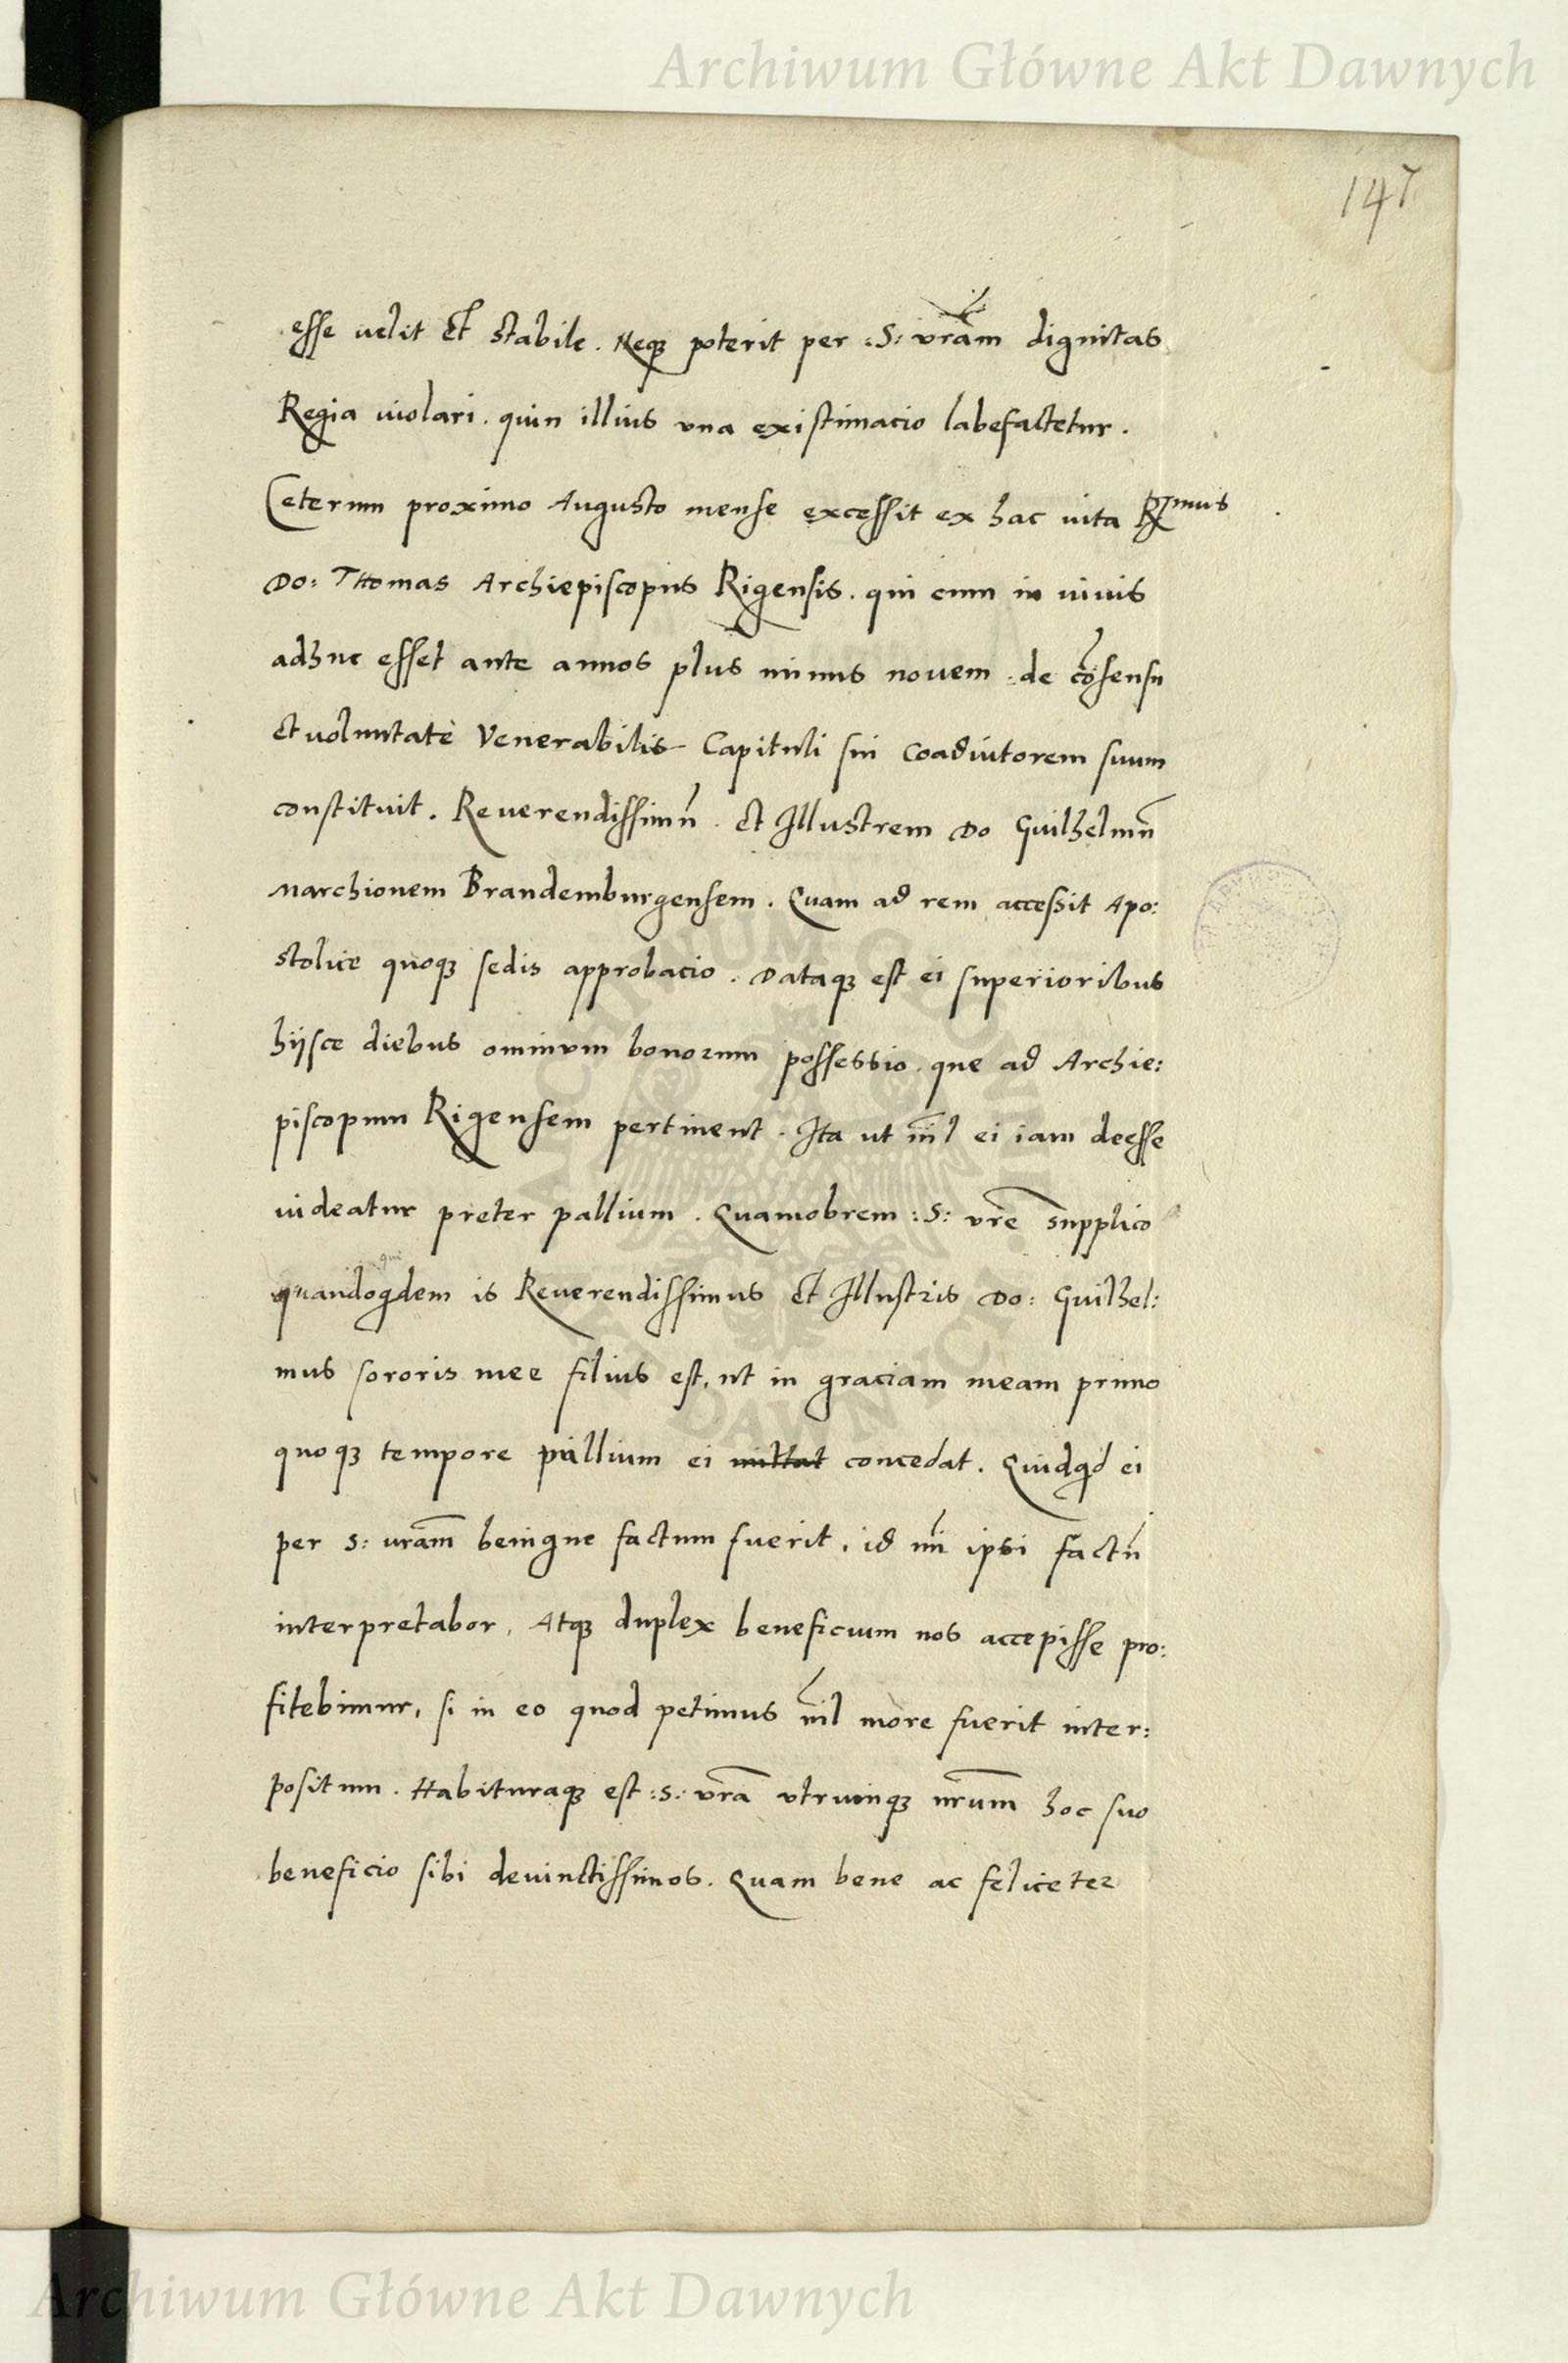 Archiwum Główne Akt Dawnych
147
esse uelit et stabile. Neqꝫ poterit per :S: vram̄ dignitas
Regia uiolari. quin illius vna existimacio labefactetur.
Ceterum proximo Augusto mense excessit ex hac uita Rmus
Do: Thomas Archiepiscopus Rigensis. qui cum in uiuis
adhuc esset ante annos plus minus nouem. de cōsensu
et uoluntate Venerabilis Capituli sui Coadiutorem suum
constituit. Reuerendissimū. et Illustrem Do Guilhelmū
Marchionem Brandemburgensem. Quam ad rem accessit Apo:
stolice quoqꝫ sedis approbacio. Dataqꝫ est ei superioribus
hijsce diebus omnium bonorum possessio. que ad Archie:
piscopum Rigensem pertinent. Ita ut nīl ei iam deesse
uideatur preter pallium. Quamobrem :S: vrē supplico
quandoqdem is Reuerendissimus et Illustris Do: Guilhel:
mus sororis mee filius est, ut in graciam meam primo
quoqꝫ tempore pallium ei mittat concedat. Quidqd ei
per S: uram̄ benigne factum fuerit, id mī ipsi factū
interpretabor, Atqꝫ duplex beneficium nos accepisse pro:
fitebimur, si in eo quod petimus nīl more fuerit inter:
positum. Habituraqꝫ est :S: vrā vtrumqꝫ nrūm hoc suo
beneficio sibi deuinctissimos. Quam bene ac feliceter
Archiwum Główne Akt Dawnych